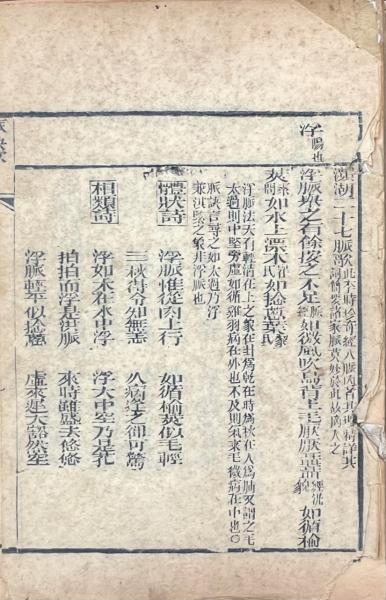 瀕湖二十七脈歌
浮陽也
浮脈舉之有餘按之不足脈經如微風吹鳥背上毛厭厭聶聶如循榆
莢如水上漂木如捻蔥葉
浮脈法天有輕清在上之象在卦為乾在時為秋在人為肺又謂之毛
太過則中堅旁虛如循雞羽病在外也不及則氣來毛微病在中也○
脈訣言尋之如太過乃浮
兼洪緊之象非浮脈也
體狀詩
浮脈惟從肉上行 如循榆莢似毛輕
三秋得令知無恙 久病逢之卻可驚
相類詩
浮如木在水中浮 浮大中空乃是芤
拍拍而浮是洪脈 來時雖盛去悠悠
浮脈輕平似捻蔥 虛來遲大豁然空